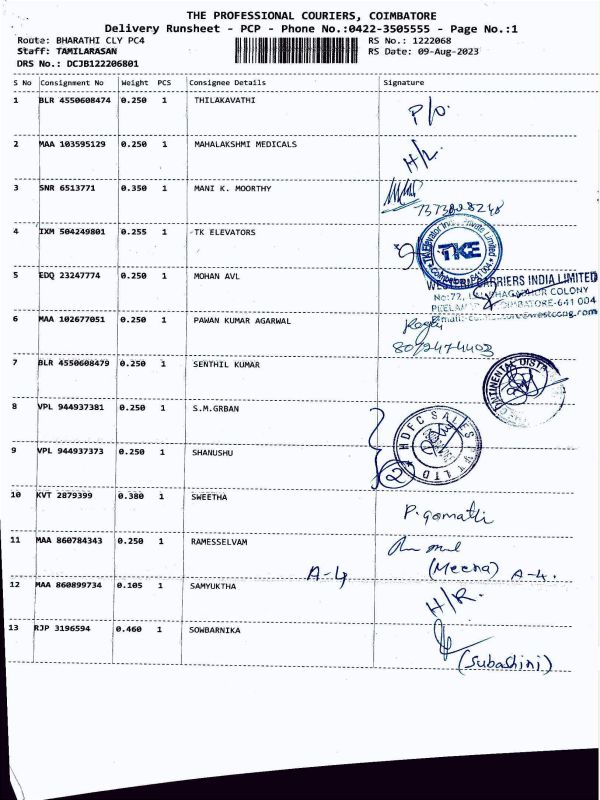 THE PROFESSIONAL COURIERS, COIMBATORE
Delivery Runsheet - PCP - Phone No.:0422-3505555 - Page No.:1
Route: BHARATHI CLY PC4 RS No.: 1222068
Staff: TAMILARASAN RS Date: 09-Aug-2023
DRS No.: DCJB122206801
S No Consignment No Weight PCS Consignee Details Signature
1 BLR 4550608474 0.250 1 THILAKAVATHI
P/o.
2 MAA 103595129 0.250 1 MAHALAKSHMI MEDICALS
H/L.
3 SNR 6513771 0.350 1 MANI K. MOORTHY
7373828248
4 IXM 504249801 0.255 1 TK ELEVATORS
TKE
5 EDQ 23247774 0.250 1 MOHAN AVL
CARRIERS INDIA LIMITED
No:72, COLONY
COIMBATORE-641 004
6 MAA 102677051 0.250 1 PAWAN KUMAR AGARWAL
8072474403
7 BLR 4550608479 0.250 1 SENTHIL KUMAR
8 VPL 944937381 0.250 1 S.M.GRBAN
HDFC SALES PVT LTD
9 VPL 944937373 0.250 1 SHANUSHU
2
10 KVT 2879399 0.380 1 SWEETHA
P. gomathi
11 MAA 860784343 0.250 1 RAMESSELVAM
(Meena) A-4.
A-4
12 MAA 860899734 0.105 1 SAMYUKTHA
H/R.
13 RJP 3196594 0.460 1 SOWBARNIKA
(Subashini)